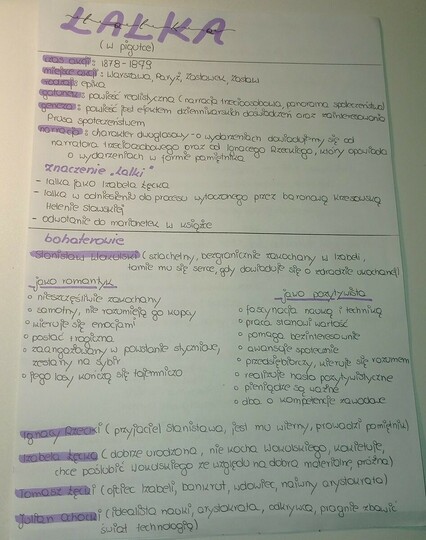 LALKA
(w pigułce)
czas akcji: 1878-1879
miejsce akcji: Warszawa, Paryż, Zasławek, Zasław
rodzaj: epika
gatunek: powieść realistyczna (narracja trzecioosobowa, panorama społeczeństwa)
geneza: powieść jest efektem dziennikarskich doświadczeń oraz zainteresowania
Prusa społeczeństwem
narracja: charakter dwugłosowy - o wydarzeniach dowiadujemy się od
narratora trzecioosobowego oraz od Ignacego Rzeckiego, który opowiada
o wydarzeniach w formie pamiętnika
znaczenie „Lalki"
- lalka jako Izabela Łęcka
- lalka w odniesieniu do procesu wytoczonego przez baronową Krzeszowską
Helenie Stawskiej
- odwołanie do marionetek w książce
bohaterowie
Stanisław Wokulski (szlachetny, bezgranicznie zakochany w Izabeli,
łamie mu się serce, gdy dowiaduje się o zdradzie ukochanej)
jako romantyk
◦ nieszczęśliwie zakochany
◦ samotny, nie rozumieją go kupcy
◦ kieruje się emocjami
◦ postać tragiczna
◦ zaangażowany w powstanie styczniowe,
zesłany na Sybir
◦ jego losy kończą się tajemniczo
jako pozytywista
◦ fascynacja nauką i techniką
◦ praca stanowi wartość
◦ pomaga bezinteresownie
◦ awansuje społecznie
◦ przedsiębiorczy, kieruje się rozumem
◦ realizuje hasła pozytywistyczne
◦ pieniądze są ważne
◦ dba o kompetencje zawodowe
Ignacy Rzecki (przyjaciel Stanisława, jest mu wierny, prowadzi pamiętnik)
Izabela Łęcka (dobrze urodzona, nie kocha Wokulskiego, kokietuje,
chce poślubić Wokulskiego ze względu na dobra materialne, próżna)
Tomasz Łęcki (ojciec Izabeli, bankrut, wdowiec, naiwny arystokrata)
Julian Ochocki (idealista nauki, arystokrata, odkrywca, pragnie zbawić
świat technologią)